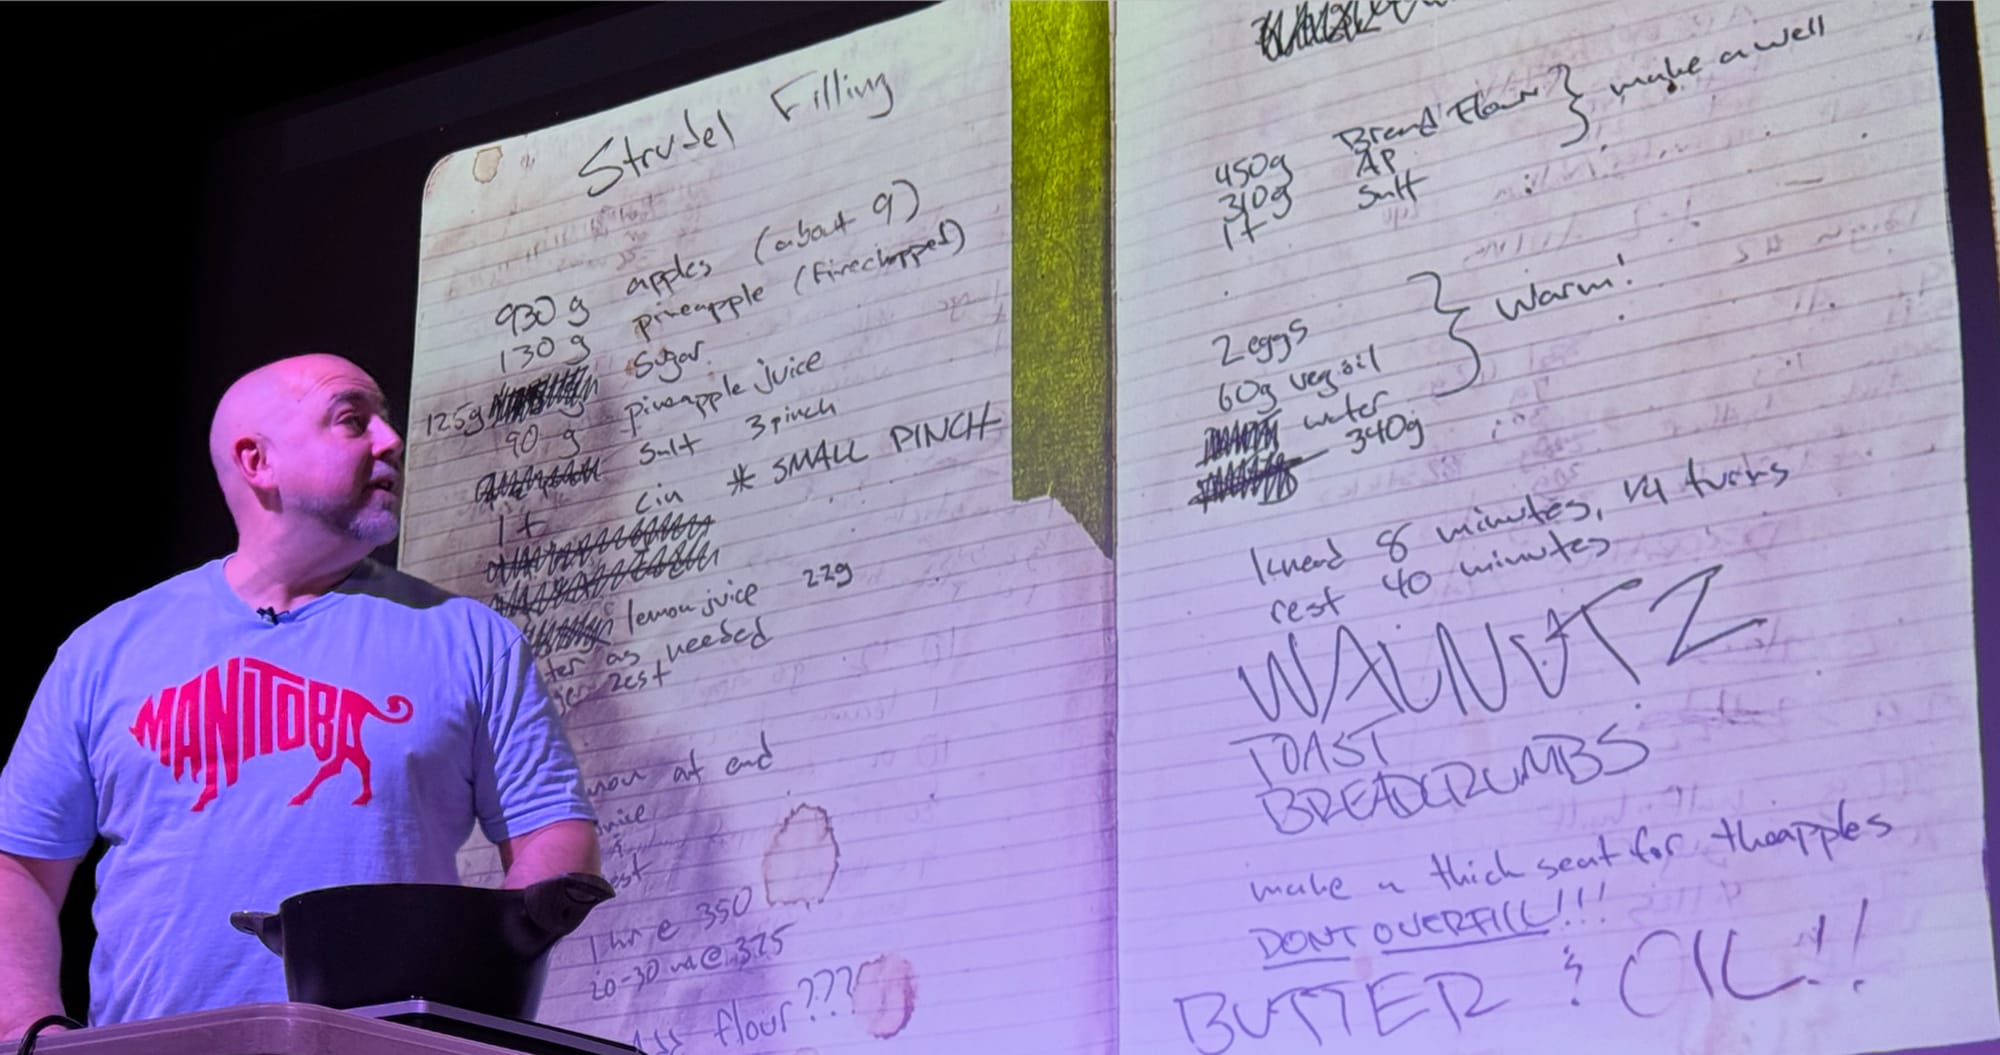 Strudel Filling
930 g apples (about 9)
130 g pineapple (fine chopped)
125g sugar
90 g pineapple juice
salt 3 pinch
1 t cin * SMALL PINCH
lemon juice 22g
as needed
zest
at end
1 hr @ 350
20-30 m @ 325
flour???
450g Bread Flour } make a well
310g AP
1t salt
2 eggs } Warm!
60g veg oil
water
340g
knead 8 minutes, 1/4 turns
rest 40 minutes
WALNUTZ
TOAST
BREADCRUMBS
make a thick seat for the apples
DONT OVERFILL!!!
BUTTER & OIL!!
MANITOBA